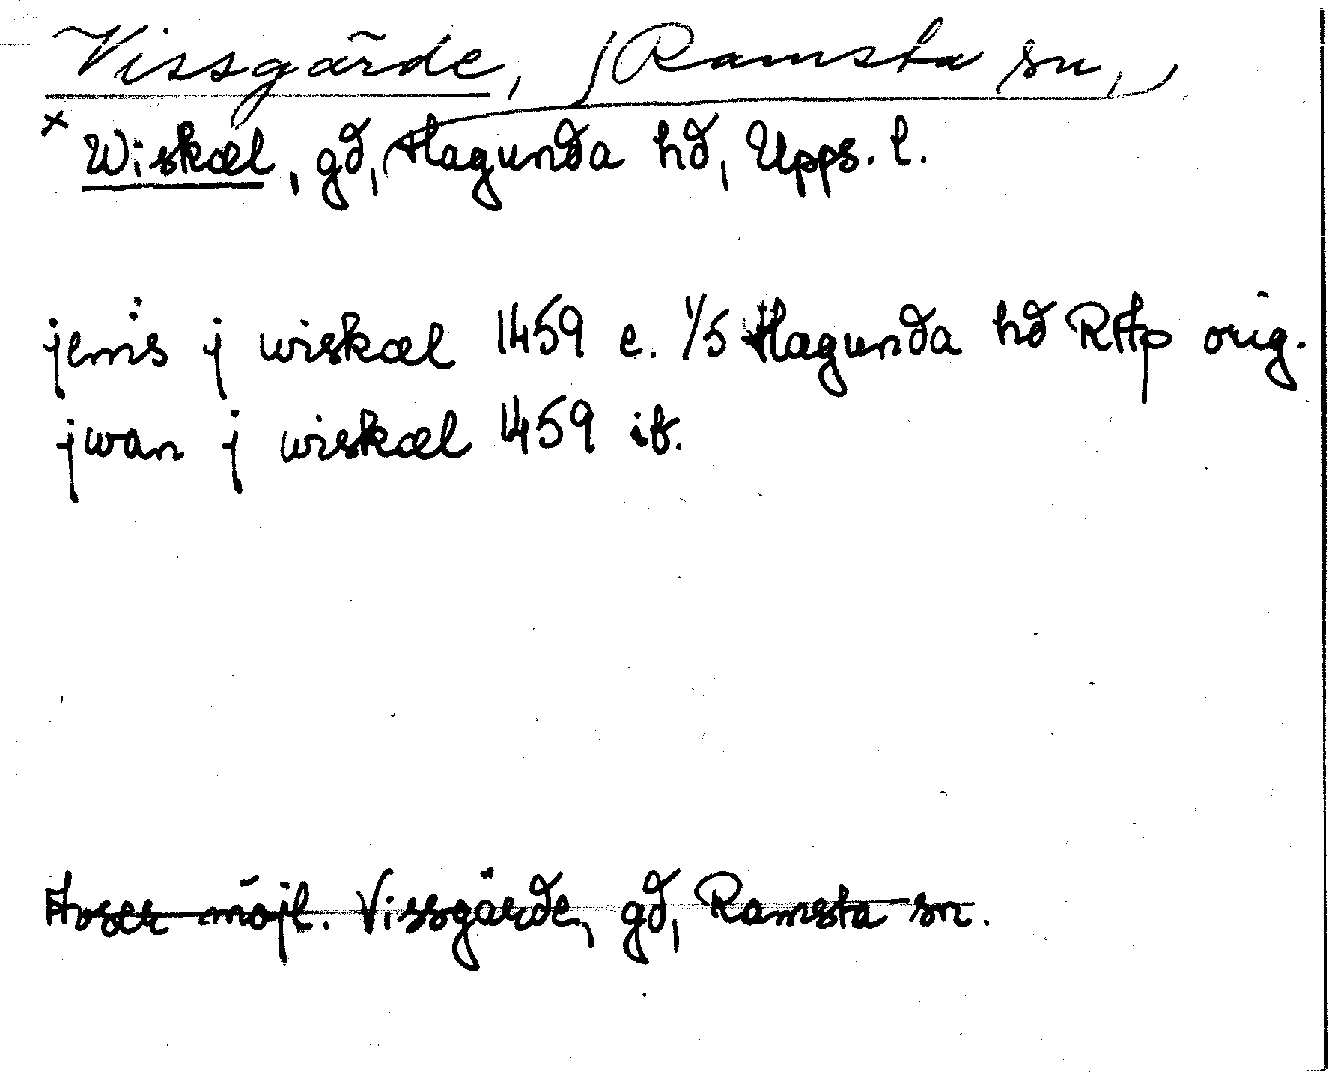 Vissgärde, Ramsta sn,
× Wiskæl, gd, Hagunda hd, Upps. l.
j wiskæl 1459 e. 1/5 Hagunda hd RAp orig.
jwan j wiskæl 1459 ib.
Avser möjl. Vissgärde, gd, Ramsta sn.